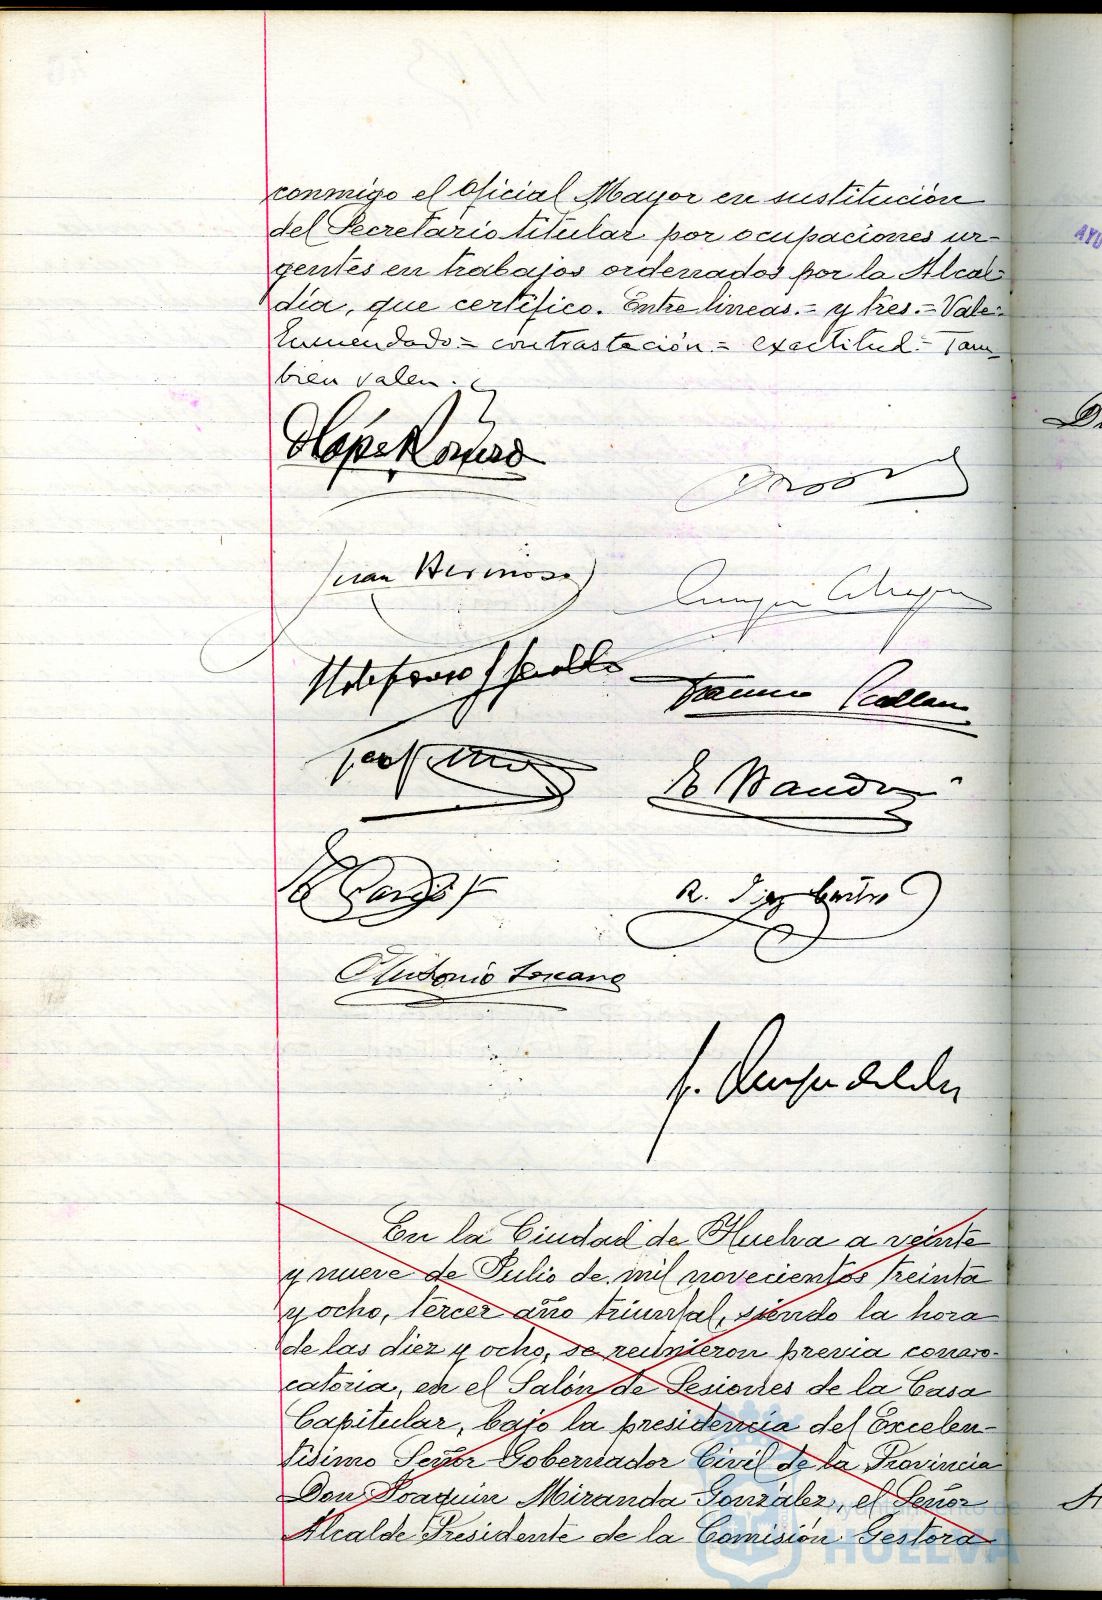 conmigo el Oficial Mayor en sustitución
del Secretario titular por ocupaciones ur-
gentes en trabajos ordenados por la Alcal-
día, que certifico. Entre lineas.= y tres.= Vale.=
Enmendado.= contrastación.= exactitud.= Tam-
bien valen.
Juan Hermoso
R. Diaz
Antonio
En la Ciudad de Huelva a veinte
y nueve de Julio de mil novecientos treinta
y ocho, tercer año triunfal, siendo la hora
de las diez y ocho, se reunieron previa convo-
catoria, en el Salón de Sesiones de la Casa
Capitular, bajo la presidencia del Excelen-
tísimo Señor Gobernador Civil de la Provincia
Don Joaquin Miranda González, el Señor
Alcalde Presidente de la Comisión Gestora
Ayuntamiento de
HUELVA